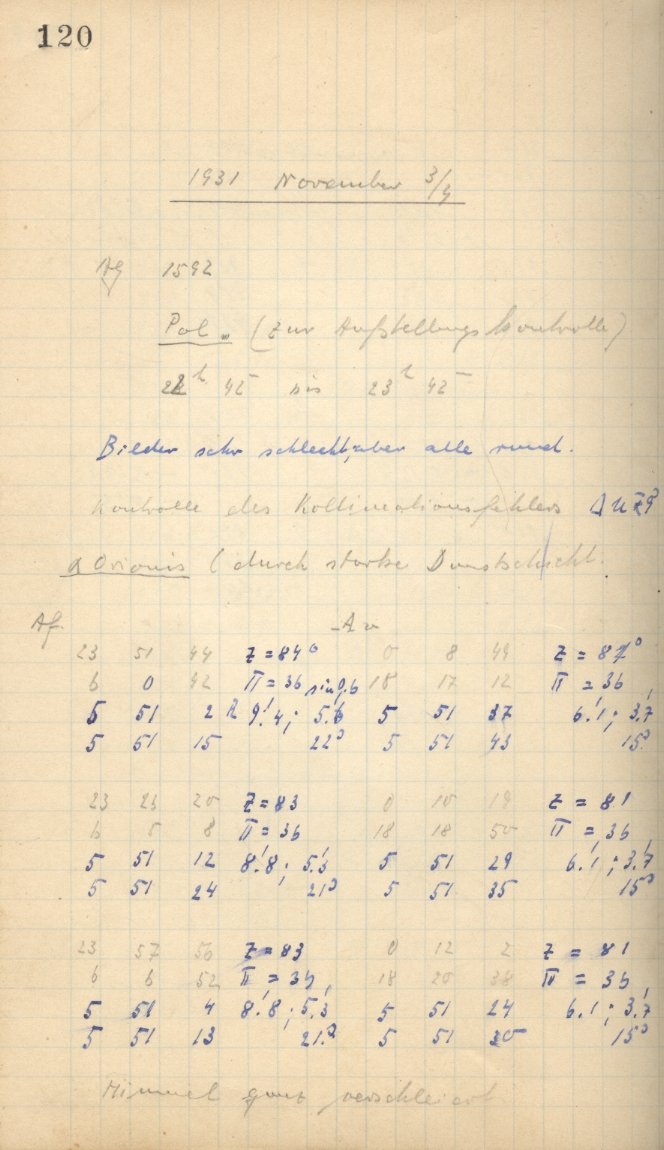 120
1931 November 3/4
Ag 1592
Pol. (zur Aufstellungskontrolle)
22h 42 bis 23h 42
Bilder sehr schlecht, aber alle rund.
Kontrolle des Kollimationsfehlers
α Orionis (durch starke Dunstschicht.
Af. Av
23 51 44 z = 84° 0 8 49 z = 82°
6 0 42 π = 36 18 17 12 π = 36
5 51 2 9.4; 5.6 5 51 37 6.1; 3.7
5 51 15 22 5 51 43 15
23 20 z = 83 0 10 19 z = 81
6 5 8 π = 36 18 18 50 π = 36
5 51 12 8.8; 5.3 5 51 29 6.1; 3.7
5 51 24 21 5 51 35 15
23 57 56 z = 83 0 12 2 z = 81
6 6 52 π = 36 18 20 38 π = 36
5 51 4 8.8; 5.3 5 51 24 6.1; 3.7
5 51 13 21 5 51 30 15
Himmel ganz verschleiert